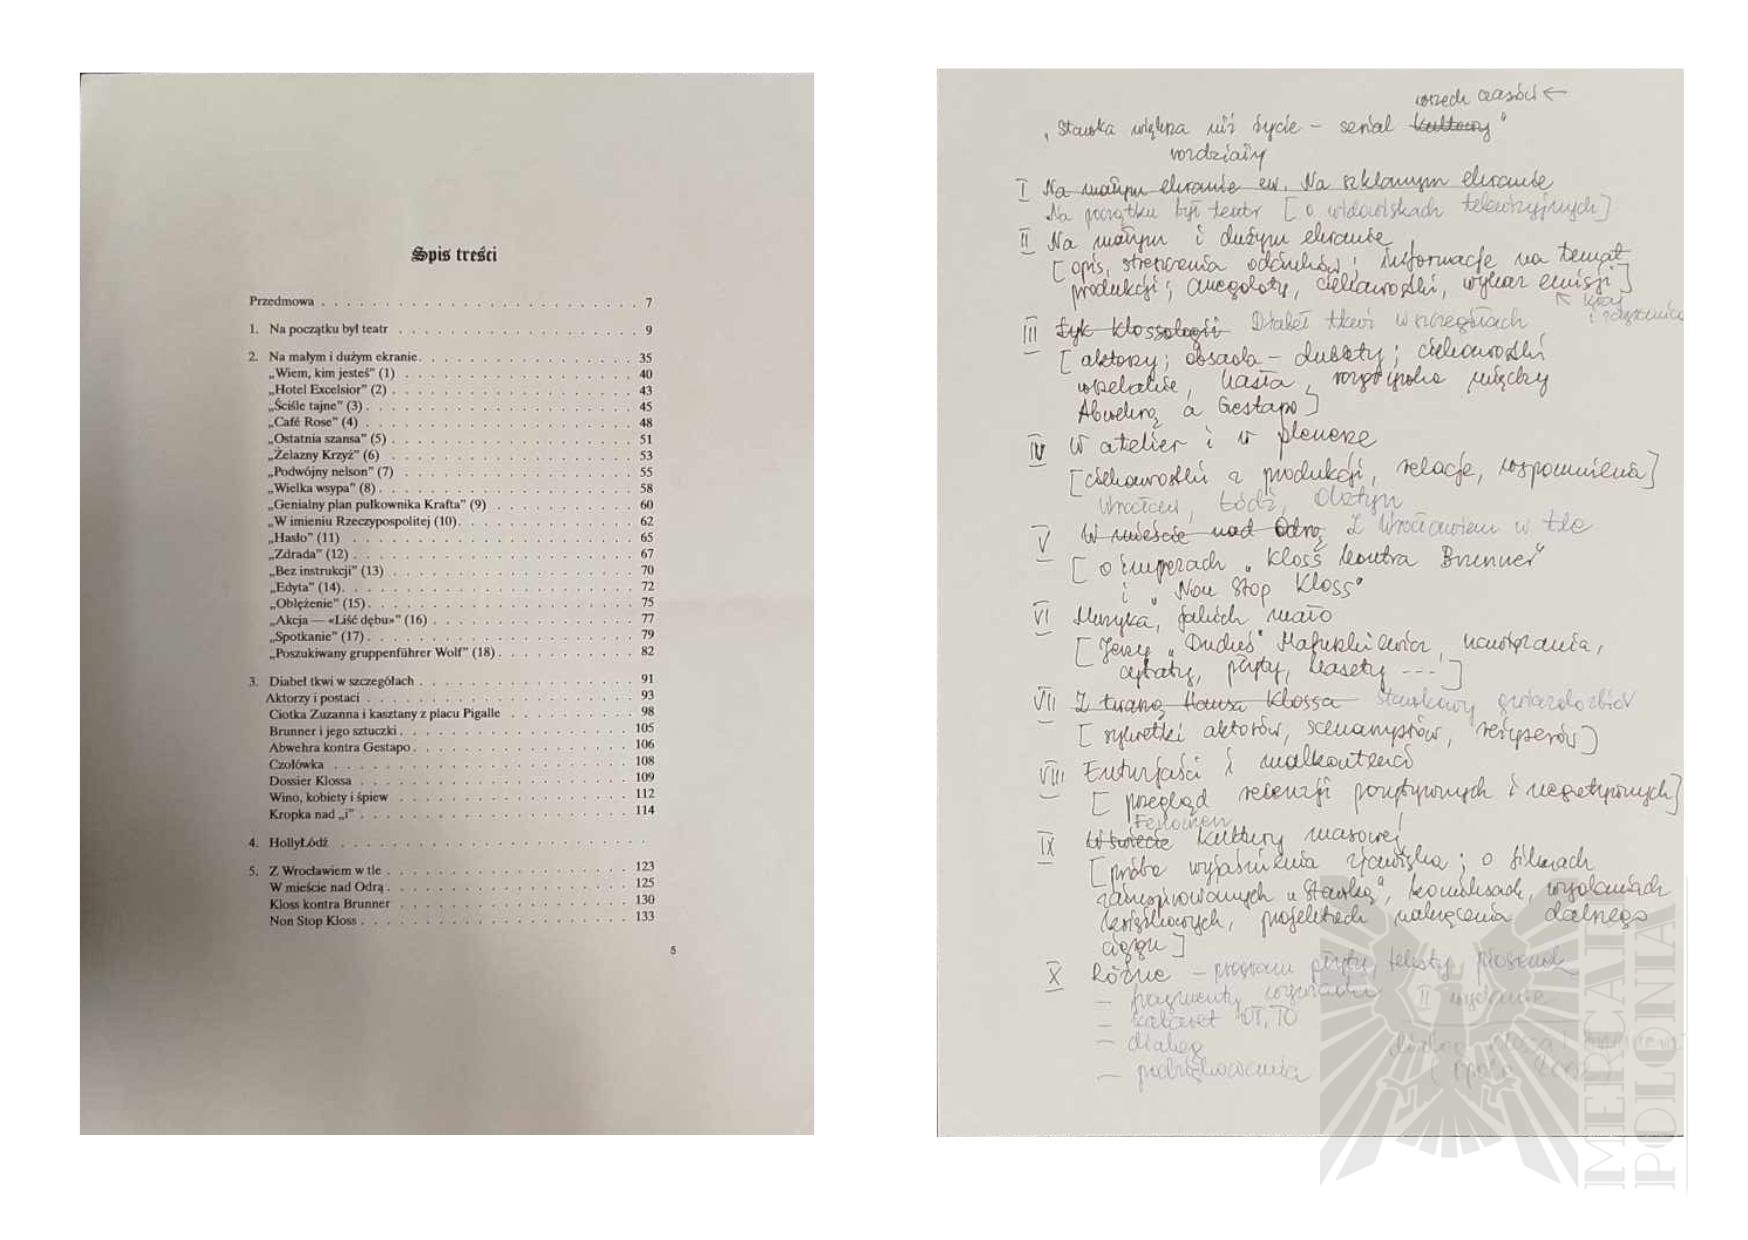 Spis treści
Przedmowa . . . . . . . . . . 7
1. Na początku był teatr . . . . . . . . . . 9
2. Na małym i dużym ekranie . . . . . . . . . . 35
„Wiem, kim jesteś” (1) . . . . . . . . . . 40
„Hotel Excelsior” (2) . . . . . . . . . . 43
„Ściśle tajne” (3) . . . . . . . . . . 45
„Café Rose” (4) . . . . . . . . . . 48
„Ostatnia szansa” (5) . . . . . . . . . . 51
„Żelazny Krzyż” (6) . . . . . . . . . . 53
„Podwójny nelson” (7) . . . . . . . . . . 55
„Wielka wsypa” (8) . . . . . . . . . . 58
„Genialny plan pułkownika Krafta” (9) . . . . . . . . . . 60
„W imieniu Rzeczypospolitej (10) . . . . . . . . . . 62
„Hasło” (11) . . . . . . . . . . 65
„Zdrada” (12) . . . . . . . . . . 67
„Bez instrukcji” (13) . . . . . . . . . . 70
„Edyta” (14) . . . . . . . . . . 72
„Oblężenie” (15) . . . . . . . . . . 75
„Akcja — «Liść dębu»” (16) . . . . . . . . . . 77
„Spotkanie” (17) . . . . . . . . . . 79
„Poszukiwany gruppenführer Wolf” (18) . . . . . . . . . . 82
3. Diabeł tkwi w szczegółach . . . . . . . . . . 91
Aktorzy i postaci . . . . . . . . . . 93
Ciotka Zuzanna i kasztany z placu Pigalle . . . . . . . . . . 98
Brunner i jego sztuczki . . . . . . . . . . 105
Abwehra kontra Gestapo . . . . . . . . . . 106
Czołówka . . . . . . . . . . 108
Dossier Klossa . . . . . . . . . . 109
Wino, kobiety i śpiew . . . . . . . . . . 112
Kropka nad „i” . . . . . . . . . . 114
4. HollyŁódź . . . . . . . . . .
5. Z Wrocławiem w tle . . . . . . . . . . 123
W mieście nad Odrą . . . . . . . . . . 125
Kloss kontra Brunner . . . . . . . . . . 130
Non Stop Kloss . . . . . . . . . . 133
5
wszech czasów ←
„Stawka większa niż życie – serial kultowy”
rozdziały
I Na małym ekranie ew. Na szklanym ekranie
Na początku był teatr [o widowiskach telewizyjnych]
II Na małym i dużym ekranie
[opis, streszczenia odcinków; informacje na temat
produkcji; anegdoty, ciekawostki, wykaz emisji]
↖ kraj
i zagranica
III Łyk klossologii Diabeł tkwi w szczegółach
[aktorzy; obsada – dublety; ciekawostki
wpadki, hasła, rozgrywka między
Abwehrą a Gestapo]
IV W atelier i w plenerze
[ciekawostki z produkcji, relacje, wspomnienia]
Wrocław, Łódź, Olsztyn
V W mieście nad Odrą Z Wrocławiem w tle
[o imprezach „Kloss kontra Brunner”
i „Non Stop Kloss”
VI Muzyka, jakich mało
[Jerzy „Duduś” Matuszkiewicz, nawiązania,
cytaty, płyty, kasety ---]
VII Z twarzą Hansa Klossa stawkowy gwiazdozbiór
[sylwetki aktorów, scenarzystów, reżyserów]
VIII Entuzjaści i malkontenci
[przegląd recenzji pozytywnych i negatywnych]
Fenomen
IX W świecie kultury masowej
[próba wyjaśnienia zjawiska; o filmach
zainspirowanych „Stawką”, komiksach, wydaniach
książkowych, projektach nakręcenia dalszego
ciągu]
X Różne – program płyty, teksty piosenek
– fragmenty wywiadu II wydanie
– kabaret OT, TO
– dialog
– podziękowania
MERCATI
POLONIA